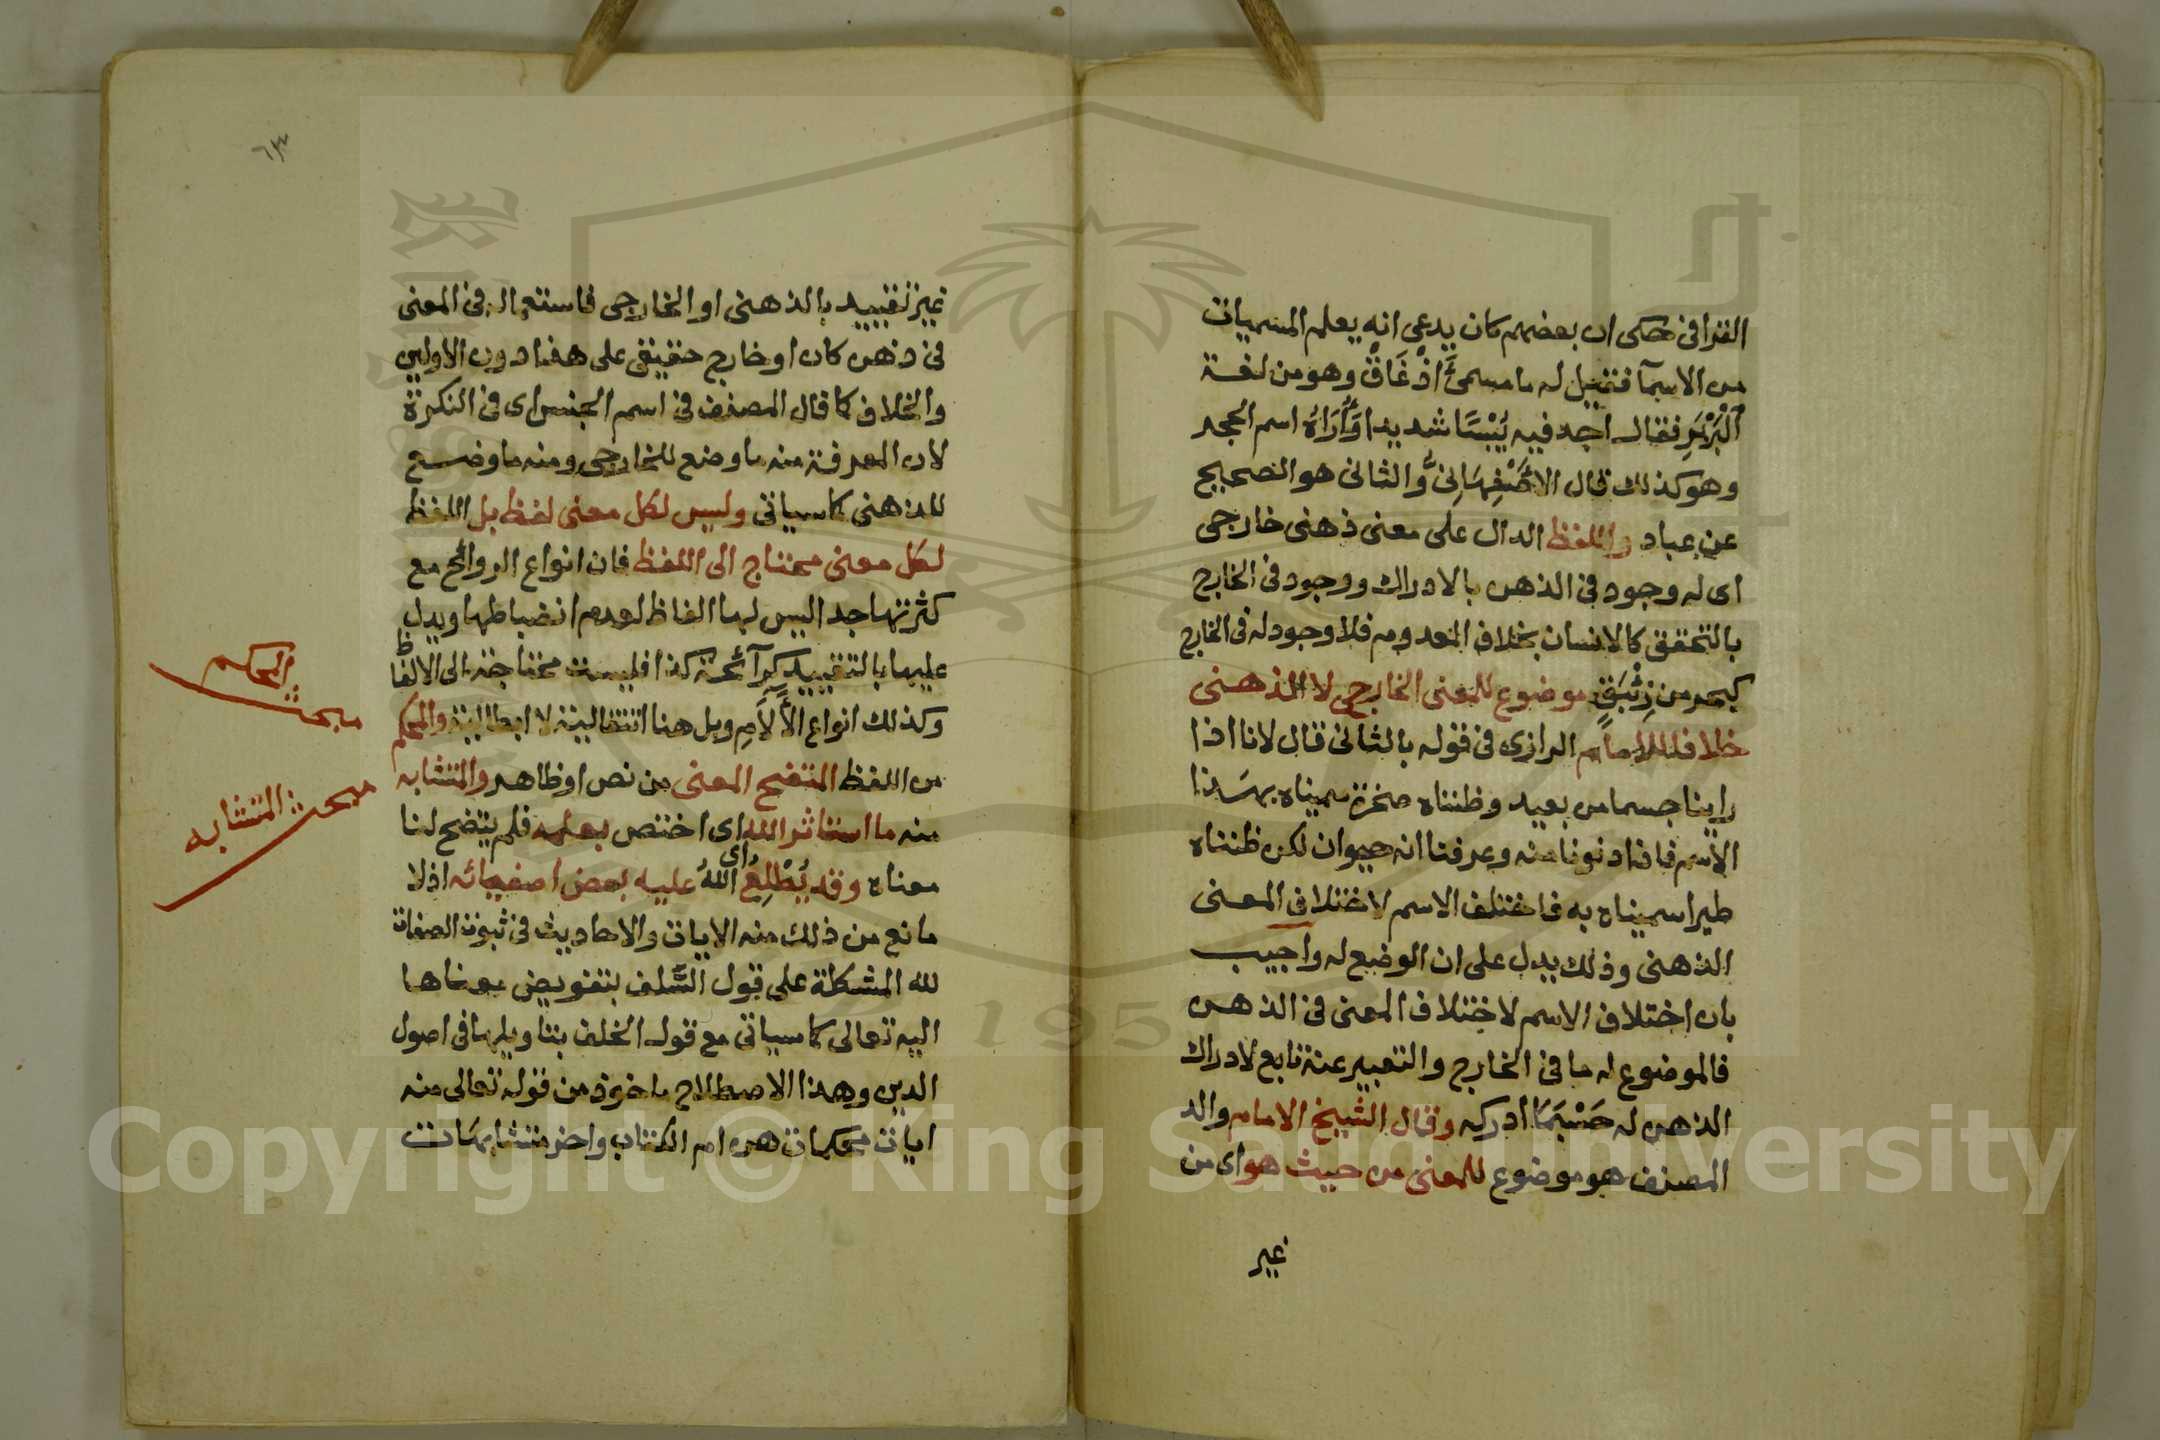 القرافى حكى ان بعضهم كان يدعى انه يعلم المسميات
من الاسمآ فقيل له ما مسمىَّ اذْغَاقْ وهو من لغة
الْبَرْبَرِ فقال اجد فيه يُبْسًا شديدا وَأُرَاهُ اسم الحجر
وهو كذلك قال الاصْفِهَانِىُّ والثانى هو الصحيح
عن عباد واللفظ الدال على معنى ذهنى خارجى
اى له وجود فى الذهن بالادراك ووجود فى الخارج
بالتحقق كالانسان بخلاف المعدوم فلا وجود له فى الخارج
كبحر من زِئْبَقٍ موضوع للمعنى الخارجى لا الذهنى
خلافا للامام الرازى فى قوله بالثانى قال لانا اذا
راينا جسما من بعيد وظنناه صخرة سميناه بهذا
الاسم فاذا دنونا منه وعرفنا انه حيوان لكن ظنناه
طيرا سميناه به فاختلف الاسم لاختلاف المعنى
الذهنى وذلك يدل على ان الوضع له واجيب
بان اختلاف الاسم لاختلاف المعنى فى الذهن
فالموضوع له ما فى الخارج والتعبير عنه تابع لادراك
الذهن له حَسْبَمَا ادركه وقال الشيخ الامام والد
المصنف هو موضوع للمعنى من حيث هو اى من
غير
٦٣
غير تقييد بالذهنى او الخارجى فاستعماله فى المعنى
فى ذهن كان او خارج حقيقى على هذا دون الاولين
والخلاف كما قال المصنف فى اسم الجنس اى فى النكرة
لان المعرفة منه ما وضع للخارجى ومنه ما وضع
للذهنى كما سياتى وليس لكل معنى لفظ بل اللفظ
لكل معنى محتاج الى اللفظ فان انواع الروائح مع
كثرتها جدا ليس لها الفاظ لعدم انضباطها ويدل
عليها بالتقييد كرآئحة كذا فليست محتاجة الى الالفاظ
وكذلك انواع الألاَمِ وبل هنا انتقالية لا ابطالية والمحكم
من اللفظ المتضح المعنى من نص او ظاهر والمتشابه
منه ما استاثر الله اى اختص بعلمه فلم يتضح لنا
معناه وقد يُطْلِعُ اى اللهُ عليه بعض اصفيائه اذ لا
مانع من ذلك منه الايات والاحاديث فى ثبوت الصفات
لله المشكلة على قول السَّلف بتفويض معناها
اليه تعالى كما سياتى مع قول الخلف بتاويلها فى اصول
الدين وهذا الاصطلاح ماخوذ من قوله تعالى منه
ايات محكمات هن ام الكتاب واخر متشابهات
مبحث المحكم
مبحث المتشابه
1957
Copyright © King Saud University